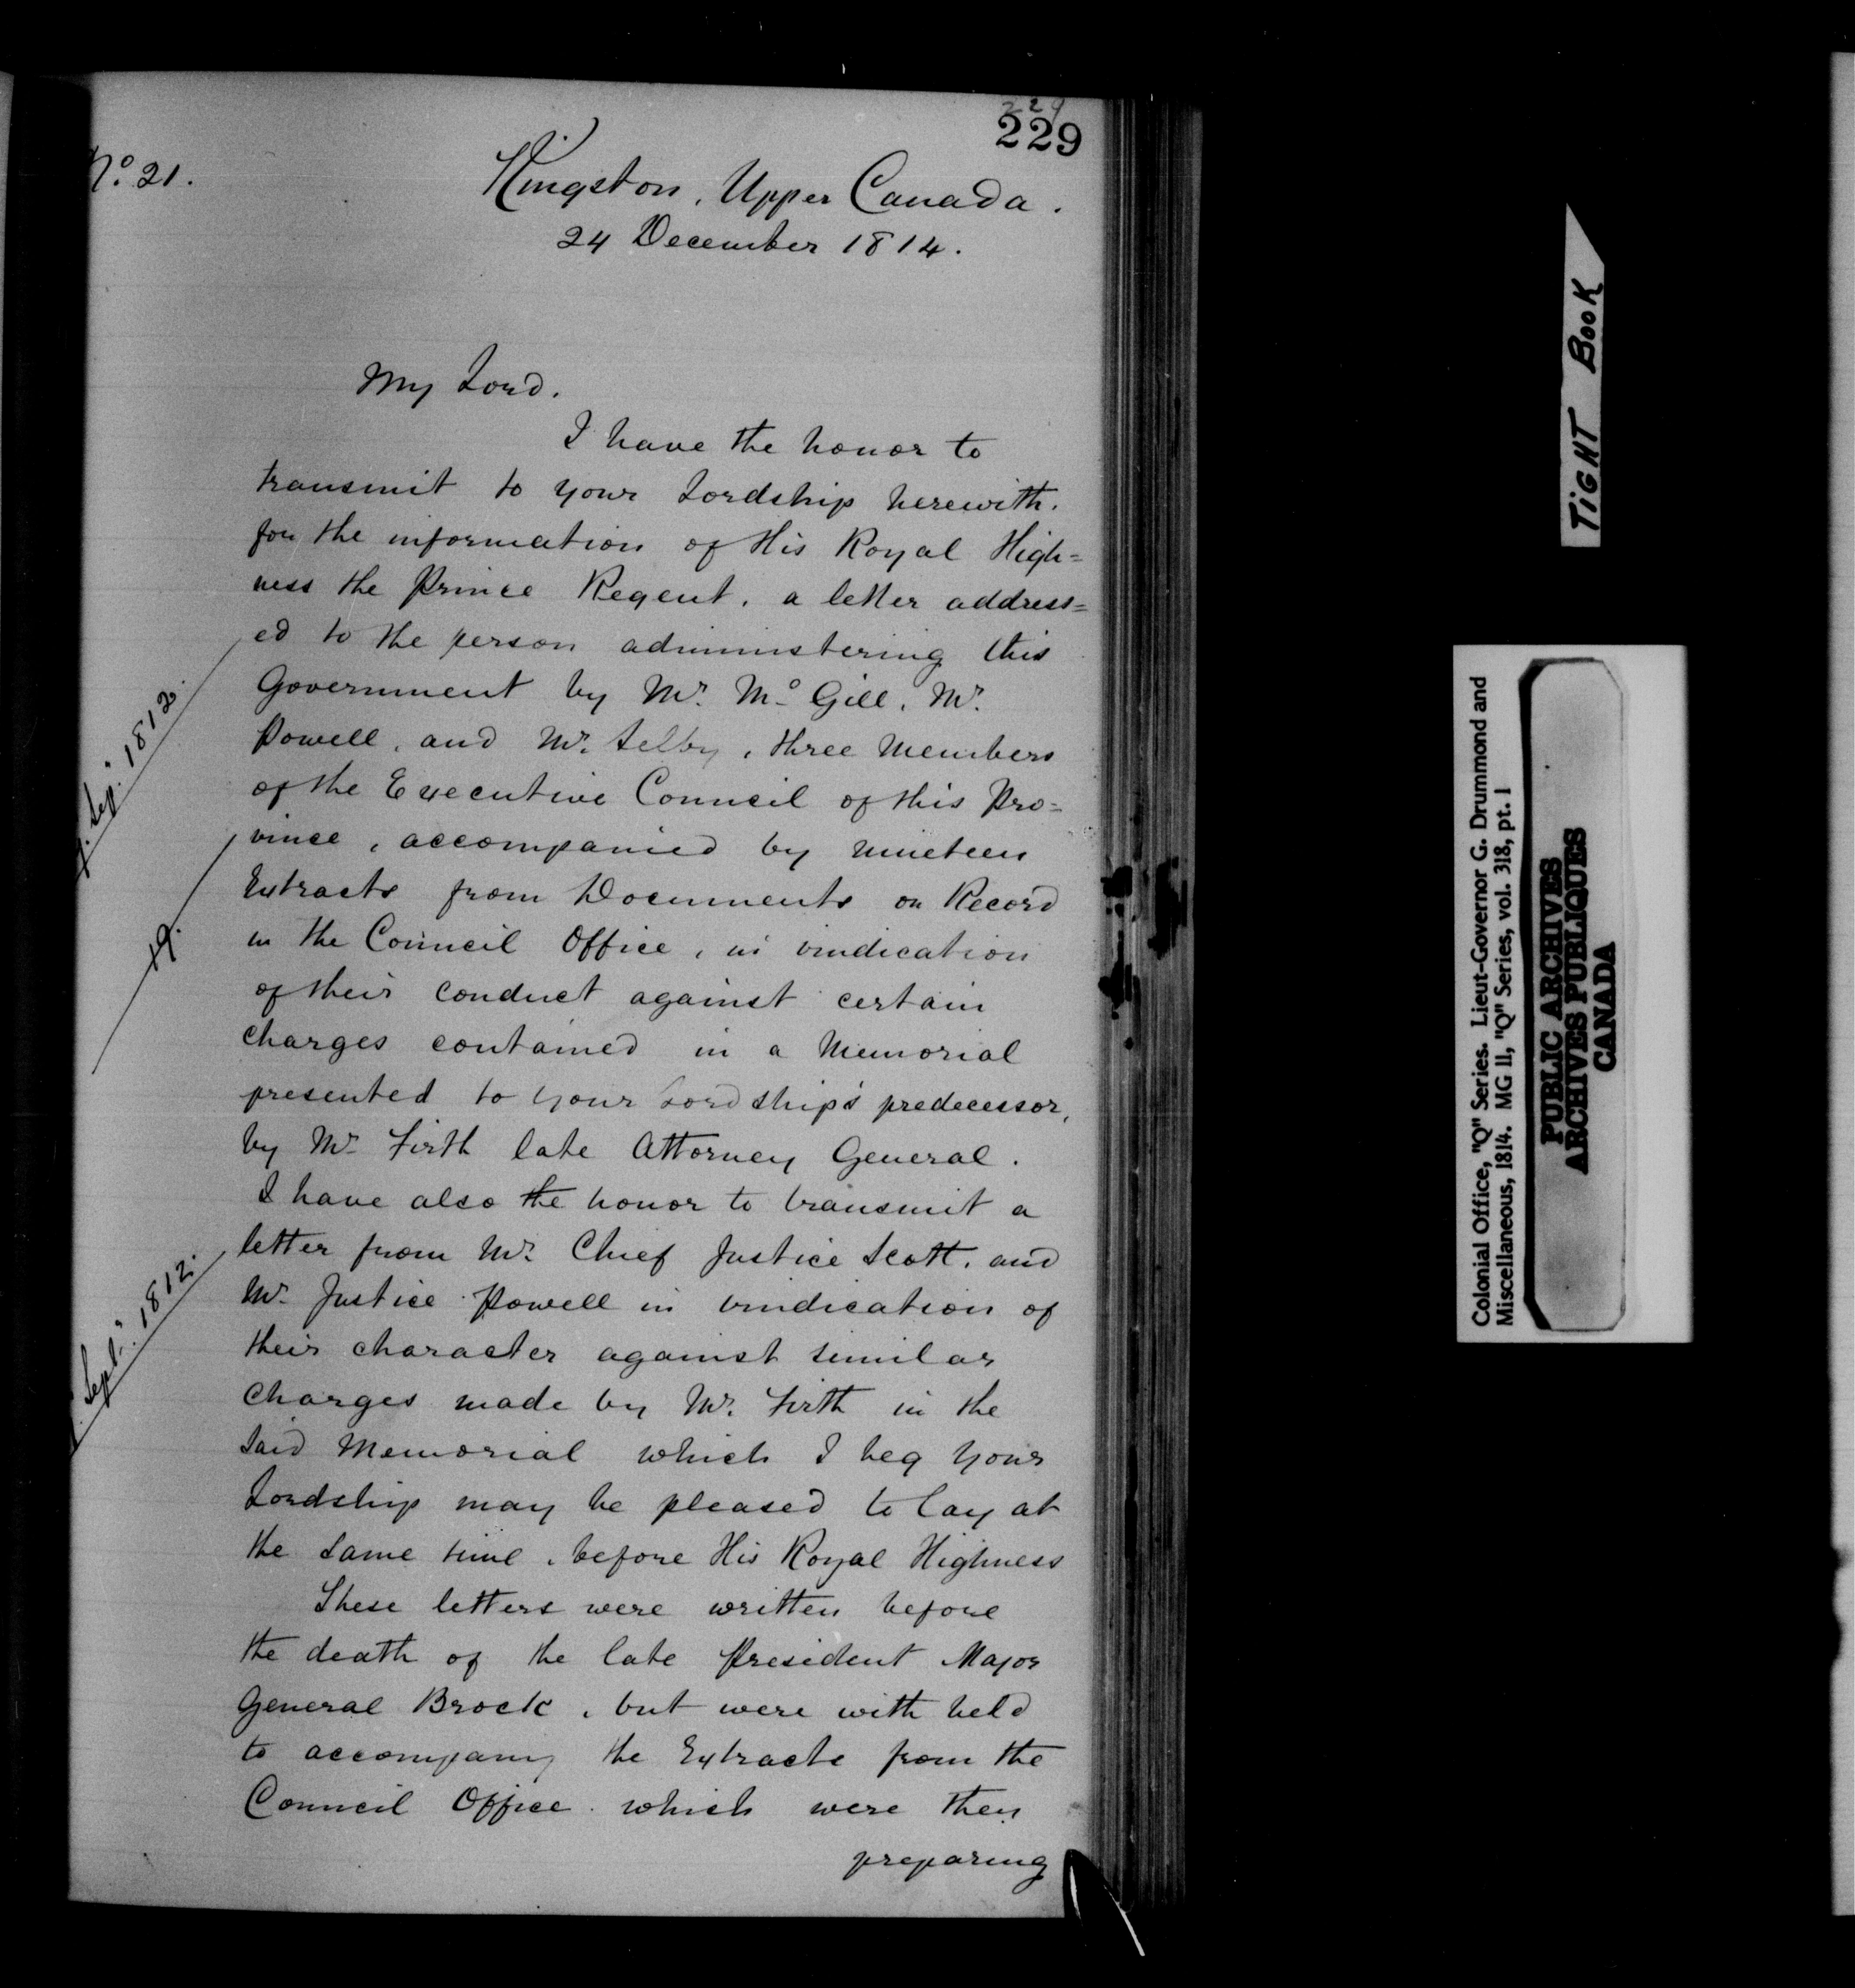 229
229
No. 21.
Kingston, Upper Canada.
24 December 1814.
My Lord.
I have the honor to
transmit to your Lordship herewith.
for the information of His Royal High=
ness the Prince Regent. a letter address=
ed to the person administering this
Government by Mr. Mc Gill, Mr.
Powell, and Mr. Selby, three Members
of the Executive Council of this Pro=
vince, accompanied by nineteen
Extracts from Documents on Record
in the Council Office, in vindication
of their conduct against certain
charges contained in a Memorial
presented to your Lordship's predecessor,
by Mr. Firth late Attorney General.
I have also the honor to transmit a
letter from Mr. Chief Justice Scott. and
Mr. Justice Powell in vindication of
their character against similar
charges made by Mr. Firth in the
said Memorial which I beg your
Lordship may be pleased to lay at
the same time, before His Royal Highness
These letters were written before
the death of the late President Major
General Brock, but were with held
to accompany the Extracts from the
Council Office. which were then
preparing
Sep. 1812.
19.
Sept. 1812.
TIGHT BOOK
Colonial Office, "Q" Series. Lieut-Governor G. Drummond and
Miscellaneous, 1814. MG 11, "Q" Series, vol. 318, pt. 1
PUBLIC ARCHIVES
ARCHIVES PUBLIQUES
CANADA